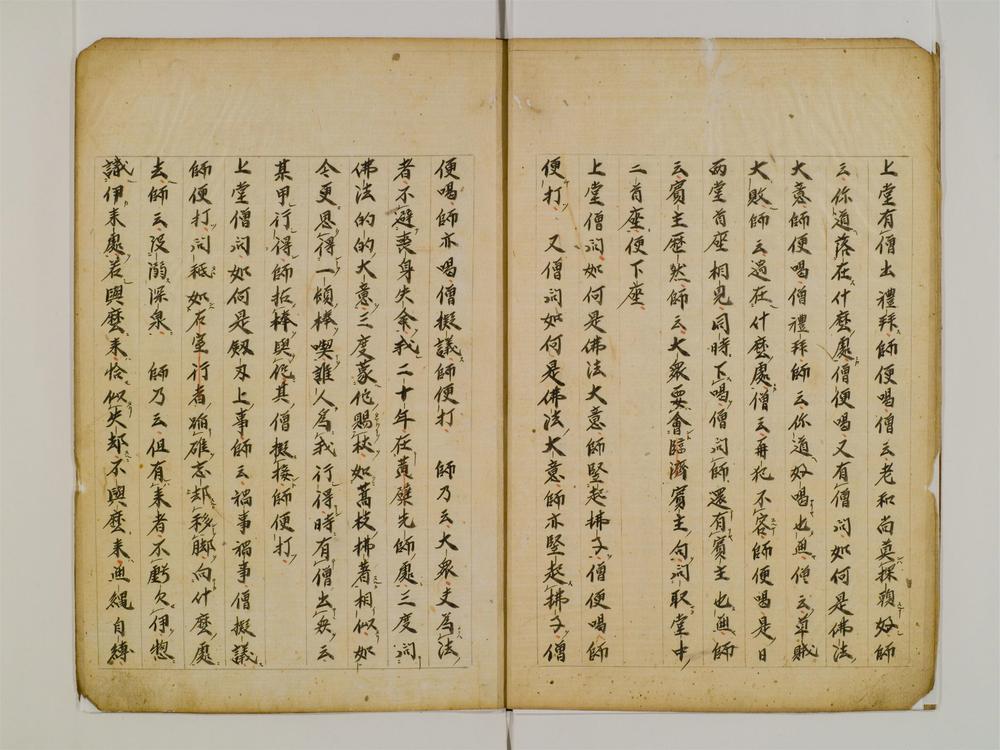 上堂有僧出禮拜師便喝僧云老和尚莫探頭好師
云你道落在什麼處僧便喝又有僧問如何是佛法
大意師便喝僧禮拜師云你道好喝也無僧云草賊
大敗師云過在什麼處僧云再犯不容師便喝是日
兩堂首座相見同時下喝僧問師還有賓主也無師
云賓主歷然師云大衆要會臨濟賓主句問取堂中
二首座便下座
上堂僧問如何是佛法大意師竪起拂子僧便喝師
便打 又僧問如何是佛法大意師亦竪起拂子僧
便喝師亦喝僧擬議師便打 師乃云大衆夫為法
者不避喪身失命我二十年在黃蘗先師處三度問
佛法的的大意三度蒙他賜杖如蒿枝拂著相似如
今更思得一頓棒喫誰人為我行得時有僧出衆云
某甲行得師拈棒與他其僧擬接師便打
上堂僧問如何是劔刃上事師云禍事禍事僧擬議
師便打問秖如石室行者踏碓忘却移脚向什麼處
去師云没溺深泉 師乃云但有来者不虧欠伊惣
識伊来處若與麼来恰似失却不與麼来無繩自縛